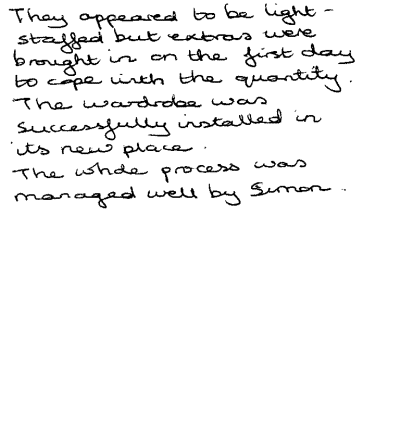 They appeared to be light-
staffed but extras were
brought in on the first day
to cope with the quantity.
The wardrobe was
successfully installed in
its new place.
The whole process was
managed well by Simon.